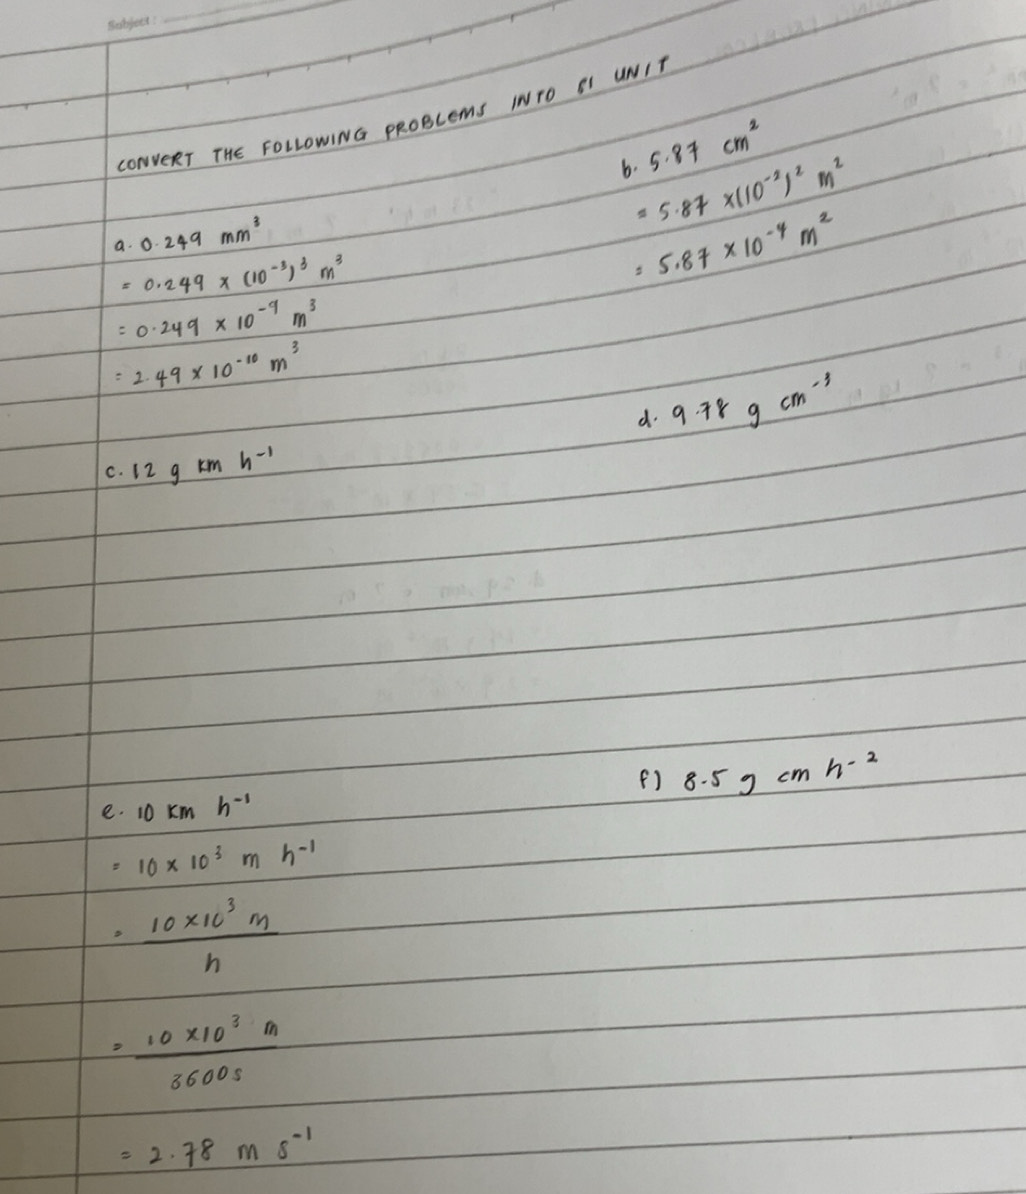 Subject :
CONVERT THE FOLLOWING PROBLEMS INTO SI UNIT
a. 0.249 mm³
= 0.249 × (10⁻³)³ m³
= 0.249 × 10⁻⁹ m³
= 2.49 × 10⁻¹⁰ m³
b. 5.87 cm²
= 5.87 ×(10⁻²)² m²
= 5.87 × 10⁻⁴ m²
c. 12 g km h⁻¹
d. 9.78 g cm⁻³
e. 10 km h⁻¹
= 10 × 10³ m h⁻¹
= 10 ×10³ m
h
= 10 ×10³ m
3600s
= 2.78 m s⁻¹
f) 8.5 g cm h⁻²